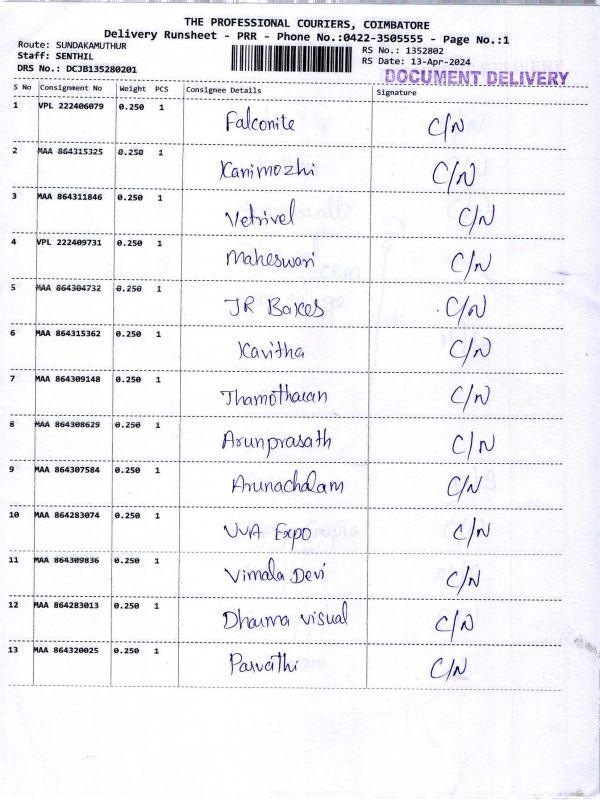 THE PROFESSIONAL COURIERS, COIMBATORE
Delivery Runsheet - PRR - Phone No.:0422-3505555 - Page No.:1
Route: SUNDAKAMUTHUR
Staff: SENTHIL
DRS No.: DCJB135280201
RS No.: 1352802
RS Date: 13-Apr-2024
DOCUMENT DELIVERY
S No Consignment No Weight PCS Consignee Details Signature
1 VPL 222406079 0.250 1 Falconite C/N
2 MAA 864315325 0.250 1 Kanimozhi C/N
3 MAA 864311846 0.250 1 Vetrivel C/N
4 VPL 222409731 0.250 1 Maheswari C/N
5 MAA 864304732 0.250 1 JR Bakes C/N
6 MAA 864315362 0.250 1 Kavitha C/N
7 MAA 864309148 0.250 1 Thamotharan C/N
8 MAA 864308629 0.250 1 Arunprasath C/N
9 MAA 864307584 0.250 1 Arunachalam C/N
10 MAA 864283074 0.250 1 VVA Expo C/N
11 MAA 864309836 0.250 1 Vimala Devi C/N
12 MAA 864283013 0.250 1 Dharma visual C/N
13 MAA 864320025 0.250 1 Parvathi C/N